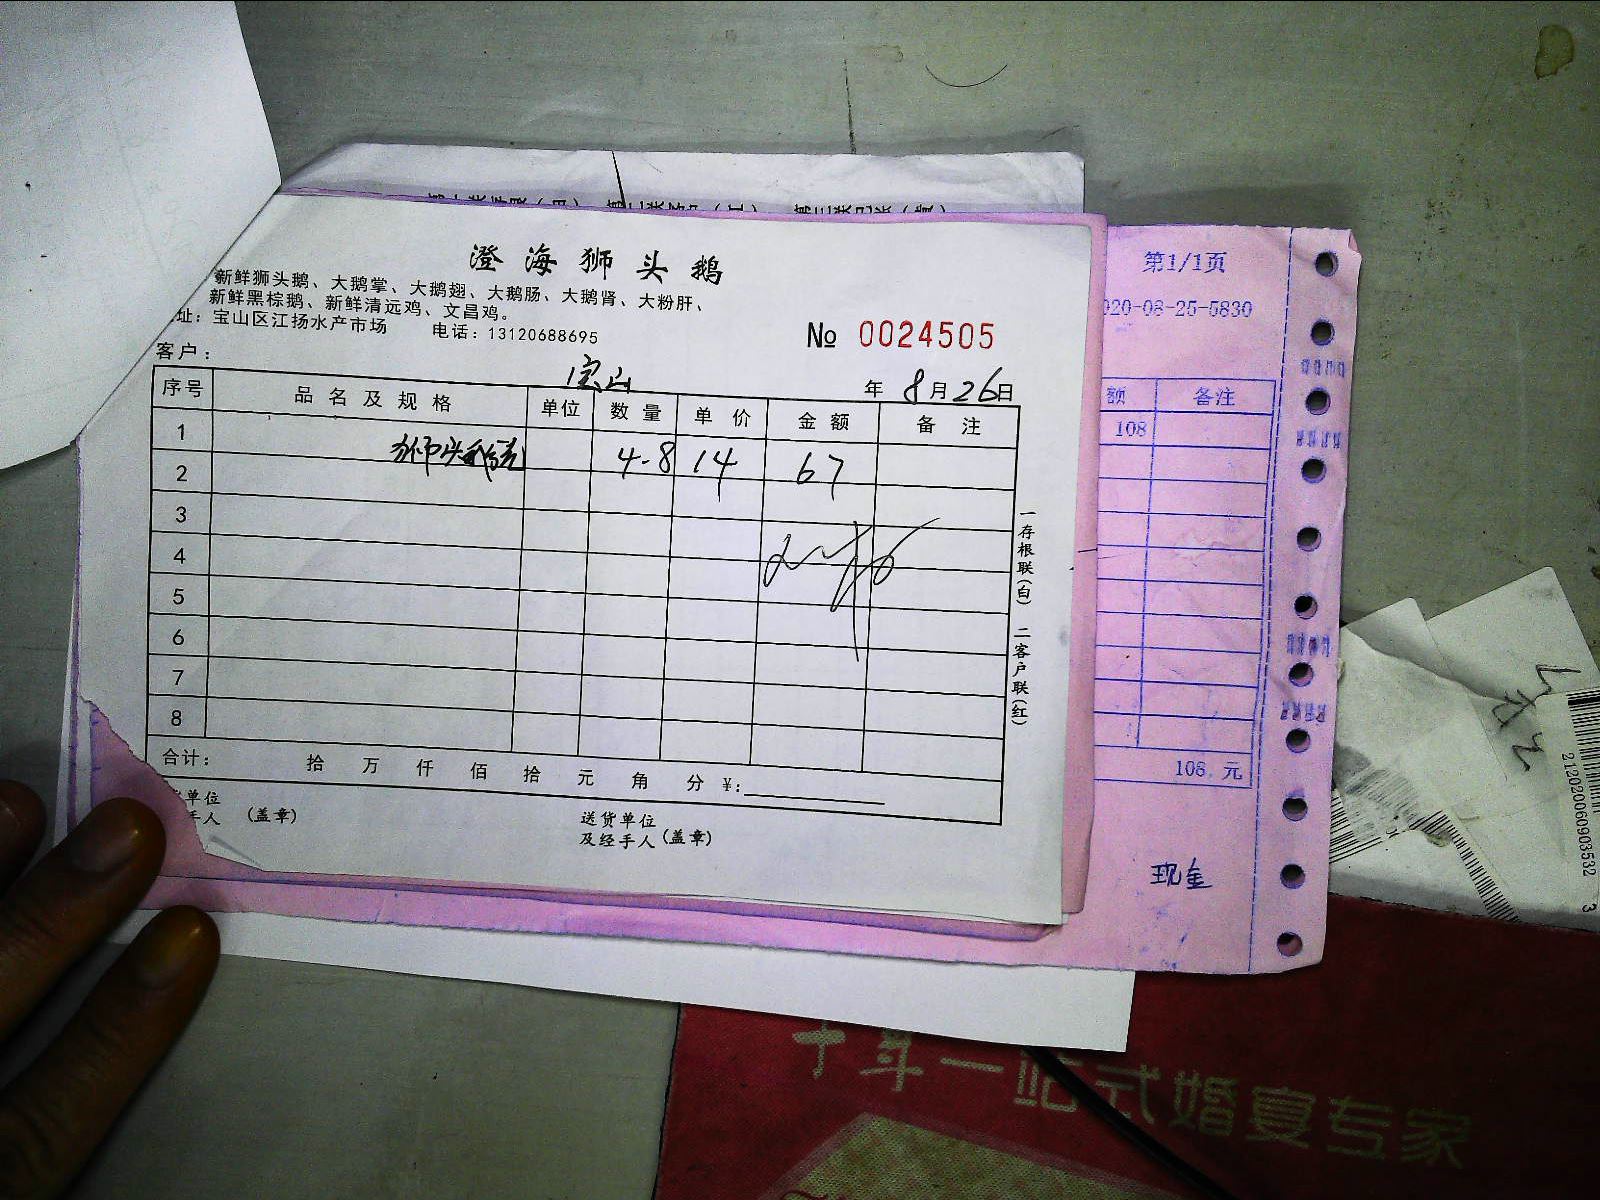 澄海狮头鹅
新鲜狮头鹅、大鹅掌、大鹅翅、大鹅肠、大鹅肾、大粉肝、
新鲜黑棕鹅、新鲜清远鸡、文昌鸡。
址：宝山区江扬水产市场 电话：13120688695
№ 0024505
客户： 宝山 年 8月26日
序号 品名及规格 单位 数量 单价 金额 备注
1
2 狮头鹅 4-8 14 67
3
4
5
6
7
8
合计： 拾 万 仟 佰 拾 元 角 分 ¥:
单位
手人 (盖章)
送货单位
及经手人 (盖章)
一存根联(白) 二客户联(红)
第1/1页
020-08-25-5830
额 备注
108
108. 元
现金
2120200609035323
十年一站式婚宴专家